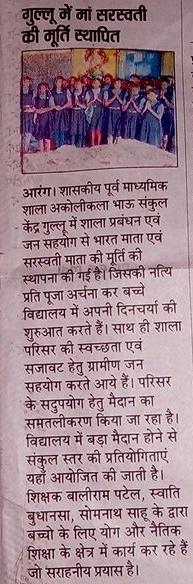 गुल्लू में मां सरस्वती
की मूर्ति स्थापित
आरंग। शासकीय पूर्व माध्यमिक
शाला अकोलीकला भाऊ संकुल
केंद्र गुल्लू में शाला प्रबंधन एवं
जन सहयोग से भारत माता एवं
सरस्वती माता की मूर्ति की
स्थापना की गई है। जिसकी नित्य
प्रति पूजा अर्चना कर बच्चे
विद्यालय में अपनी दिनचर्या की
शुरुआत करते हैं। साथ ही शाला
परिसर की स्वच्छता एवं
सजावट हेतु ग्रामीण जन
सहयोग करते आये हैं। परिसर
के सदुपयोग हेतु मैदान का
समतलीकरण किया जा रहा है।
विद्यालय में बड़ा मैदान होने से
संकुल स्तर की प्रतियोगिताएं
यहाँ आयोजित की जाती है।
शिक्षक बालीराम पटेल, स्वाति
बुधानसा, सोमनाथ साहू के द्वारा
बच्चो के लिए योग और नैतिक
शिक्षा के क्षेत्र में कार्य कर रहे हैं
जो सराहनीय प्रयास है।